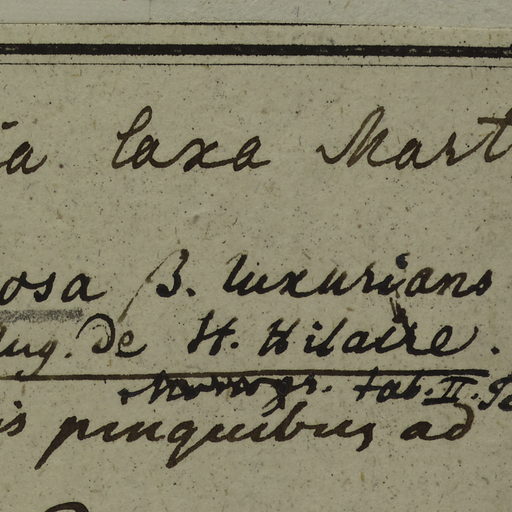 ia laxa Mart
osa β. luxurians
Aug. de St. Hilaire.
Monogr. tab. II.
is pinguibus ad